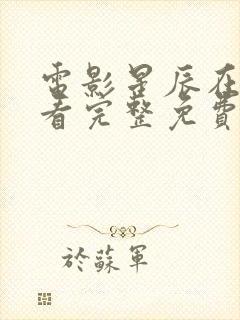 電影星辰在
看完整免費
於蘇軍